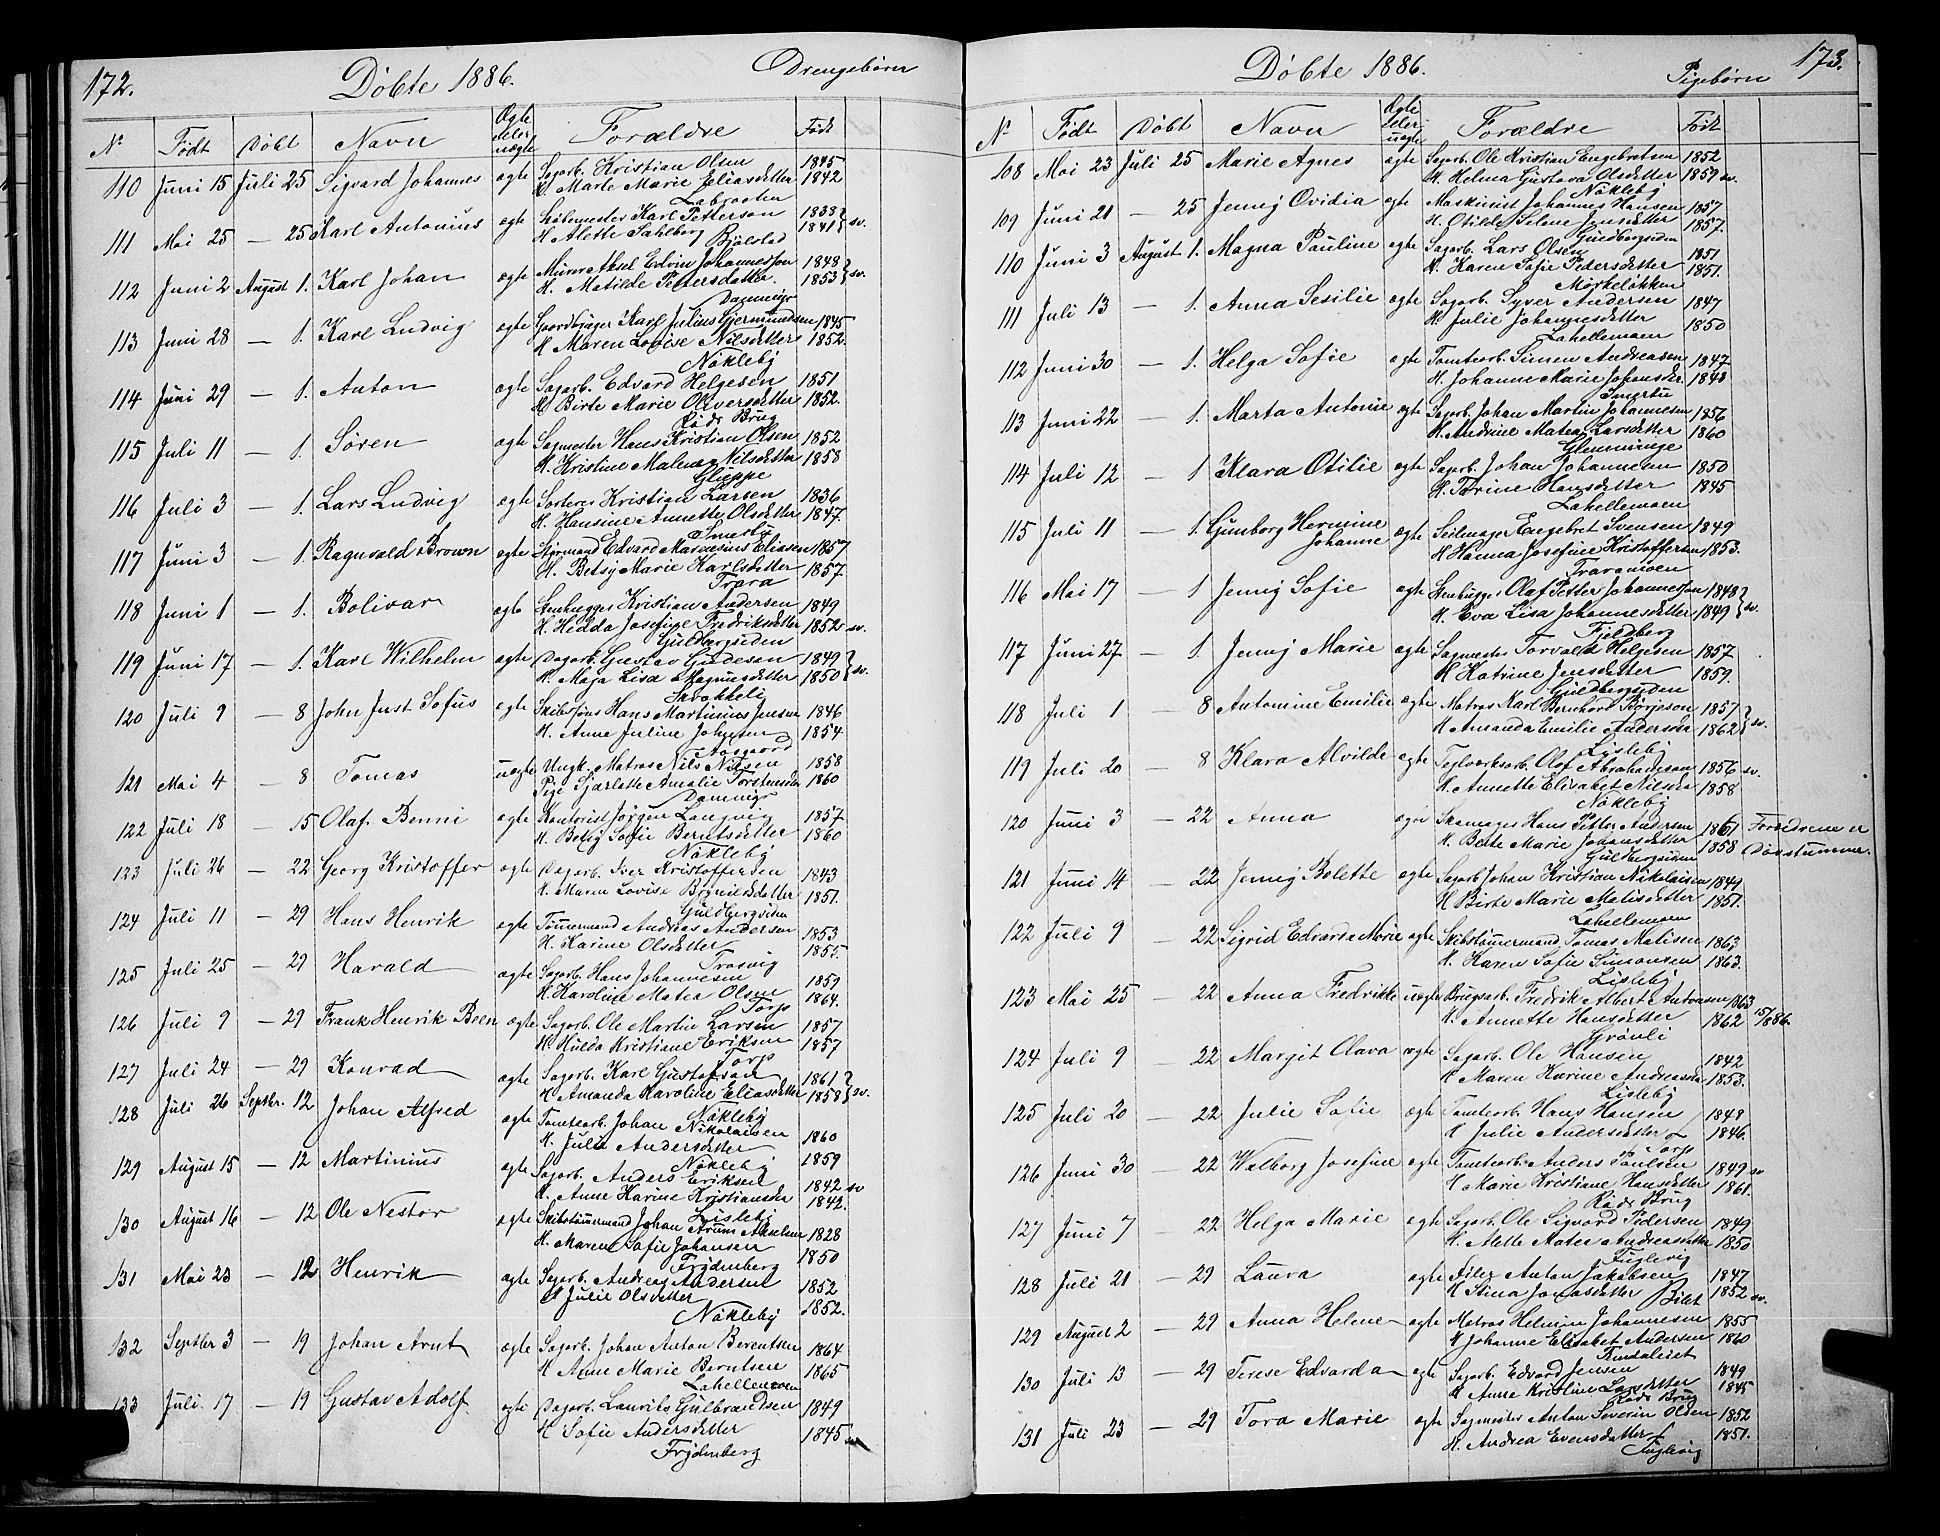 172.
Döbte 1886.
Drengebörn
No Födt Döbt Navn Ægte eller uægte Forældre Födt
110 Juni 15 Juli 25 Sigvard Johannes ægte Sagarb. Kristian Olsen 1845
H. Marte Marie Eliasdatter 1842
Labraaten
111 Mai 25 — 25 Karl Antonius ægte Karl Petterson 1838
H. Alette Dahlberg 1841 } sv.
Bjölstad
112 Juni 2 August 1. Karl Johan ægte Murer Aksel Edvin Johannesson 1848
H. Matilde Pettersdatter. 1853 } sv.
Damnigs
113 Juni 28 — 1. Karl Ludvig ægte Gaardbruger Karl Julius Gjermundsen 1845
H. Maren Lovise Nilsdatter 1852.
Nökleby
114 Juni 29 — 1. Anton ægte Sagarb. Edvard Helgesen 1851
H. Birte Marie Oliversdatter 1852.
Röds Brug
115 Juli 11 — 1. Sören ægte Sagmester Hans Kristian Olsen 1852
H. Kristine Malena Nilsdatter 1858
Gluppe
116 Juli 3 — 1. Lars Ludvig ægte Sorterer Kristian Larsen 1836
H. Hansine Annette Olsdatter 1847.
Smertu
117 Juni 3 — 1. Ragnvald Brown ægte Styrmand Edvard Marensius Eliasen 1857
H. Betsy Marie Karlsdatter 1857.
Trara
118 Juni 1 — 1. Bolivar ægte Stenhugger Kristian Andersen 1849
H. Hedda Josefine Fredriksdatter 1852 sv.
Guldbergsiden
119 Juni 17 — 1. Karl Wilhelm ægte Dagarb. Gustav Gudesen 1849
H. Maja Lisa Magnusdatter 1850 } sv.
Skrakkeli
120 Juli 9 — 8 John Just Sofus ægte Skibsförer Hans Martinius Jensen 1846
H. Anne Juline Johnsen 1854
Aasgaard
121 Mai 4 — 8 Tomas uægte Ungk. Matros Nils Nilsen 1858
Pige Sjarlotte Amalie Torstensdr 1860
Damnigs
122 Juli 18 — 15 Olaf Benni ægte Kontorist Jörgen Langvig 1857
H. Betsy Sofie Berntsdatter 1860
Nökleby
123 Juli 26 — 22 Georg Kristoffer ægte Dagarb. Iver Kristoffersen 1843
H. Maren Lovise Brynildsdatter 1851.
Guldbergsiden
124 Juli 11 — 29 Hans Henrik ægte Tömmermand Andreas Andersen 1853
H. Karine Olsdatter 1855.
Trosvig
125 Juli 25 — 29 Harald ægte Sagarb. Hans Johannesen 1859
H. Karoline Matea Olsen 1864.
Torp
126 Juli 9 — 29 Frank Henrik Been ægte Sagarb. Ole Martin Larsen 1857
H. Hulda Kristiane Eriksen 1857
Torp
127 Juli 24 — 29 Konrad ægte Sagarb. Karl Gustafsson 1861
H. Amanda Karoline Eliasdatter 1858 } sv.
Nökleby
128 Juli 26 Septbr. 12 Johan Alfred ægte Tomtearb. Johan Nikolaisen 1860
H. Julie Andersdatter 1859
Nökleby
129 August 15 — 12 Martinius ægte Sagarb. Anders Eriksen 1842 sv
H. Anne Karine Kristiansdr 1842.
Lisleby
130 August 16 — 12 Ole Nestor ægte Skibstömmermand Johan Arum Akselsen 1828
H. Maren Sofie Johansen 1850
Frydenberg
131 Mai 23 — 12 Henrik ægte Sagarb. Andreas Andersen 1852
H. Julie Olsdatter 1852.
Nökleby
132 Septbr 3 — 19 Johan Arnt ægte Sagarb. Johan Anton Berentsen 1864
H. Anne Marie Berntsen 1865
Lahellemoen
133 Juli 17 — 19 Gustav Adolf ægte Dagarb. Laurits Gulbrandsen 1849
H. Sofie Andersdatter 1845 sv
Frydenberg
173.
Döbte 1886.
Pigebörn
No Födt Döbt Navn Ægte eller uægte Forældre Födt
108 Mai 23 Juli 25 Marie Agnes ægte Sagarb. Ole Kristian Engebretsen 1852
H. Helma Gustava Olsdatter 1859 sv.
Nökleby
109 Juni 21 — 25 Jenny Ovidia ægte Maskinist Johannes Hansen 1857
H. Otilde Seline Jensdatter 1857.
Guldbergsiden
110 Juni 3 August 1. Magna Pauline ægte Sagarb. Lars Olsen 1851
H. Karen Sofie Pedersdatter 1851.
Mörkelökken
111 Juli 13 — 1. Anna Sesilie ægte Sagarb. Syver Andersen 1847
H. Julie Johannesdatter 1850
Lahellemoen
112 Juni 30 — 1. Helga Sofie ægte Tomtearb. Simen Andreasen 1847
H. Johanne Marie Johansdr. 1848
Smertu
113 Juni 22 — 1. Marta Antonie ægte Sagarb. Johan Martin Johannesen 1856
H. Andrine Matea Larsdatter 1860
Glemminge
114 Juli 12 — 1 Klara Otilie ægte Sagarb. Johan Johannesen 1850
H. Torine Hansdatter 1845
Lahellemoen
115 Juli 11 — 1. Gunborg Hermine Johanne ægte Seilmager Engebret Svensen 1849
H. Hanna Josefine Kristoffersen 1853.
Traramoen
116 Mai 17 — 1 Jenny Sofie ægte Stenhugger Olaf Petter Johannesson 1848
H. Eva Lisa Johannesdatter 1849 } sv.
Fjeldberg
117 Juni 27 — 1. Jenny Marie ægte Sagmester Torvald Helgesen 1857
H. Katrine Jensdatter 1859.
Guldbergsiden
118 Juli 1 — 8 Antonine Emilie ægte Matros Karl Bernhard Börjeson 1857
H. Amanda Emilie Andersdr 1862 } sv.
Lisleby
119 Juli 20 — 8 Klara Alvilde ægte Teglværksarb. Olof Abrahamson 1856 sv.
H. Annette Elisabet Nilsdr 1858
Nökleby
120 Juni 3 — 22 Anna ægte Skomager Hans Petter Andersen 1861 Forældrene er
H. Berte Marie Johansdatter 1858 Dövstumme.
Guldbergsiden
121 Juni 14 — 22 Jenny Bolette ægte Sagarb. Johan Kristian Nikolaisen 1849
H. Birte Marie Matisdatter 1851.
Lahellemoen
122 Juli 9 — 22 Sigrid Edvarda Marie ægte Skibstömmermand Tomas Matisen 1863
H. Karen Sofie Simonsen 1863.
Lisleby
123 Mai 25 — 22 Anna Fredrikke uægte Brugsarb. Fredrik Albert Antonsen 1863
H. Annette Hansdatter 1862
Grönli
124 Juli 9 — 22 Margit Olava ægte Sagarb. Ole Hansen 1842
H. Maren Karine Andreasdr 1853.
Lisleby
125 Juli 20 — 22 Julie Sofie ægte Tomtearb. Hans Hansen 1848
H. Julie Andersdatter 1846.
Torp
126 Juni 30 — 22 Walborg Josefine ægte Tomtearb. Anders Paulsen 1849 sv
H. Marie Kristiane Hansdatter 1861.
Röds Brug
127 Juni 7 — 22 Helga Marie ægte Sagarb. Ole Sigvard Pedersen 1849
H. Alette Matea Andreasdatter 1850
Fuglevig
128 Juli 21 — 29 Laura ægte Filer Anton Jakobsen 1847
H. Stina Jonasdatter 1852 sv.
Bilet
129 August 2 — 29 Anna Helene ægte Matros Helmin Johannesen 1855
H. Johanne Elisabet Andersen 1860
130 Juli 13 — 29 Terese Edvarda ægte Sagarb. Edvard Jensen 1849
H. Anne Kristine Larsdatter 1845
Röds Brug
131 Juli 23 — 29 Tora Marie ægte Sagmester Anton Severin Olsen 1852
H. Andrea Evensdatter 1851.
Fuglevig